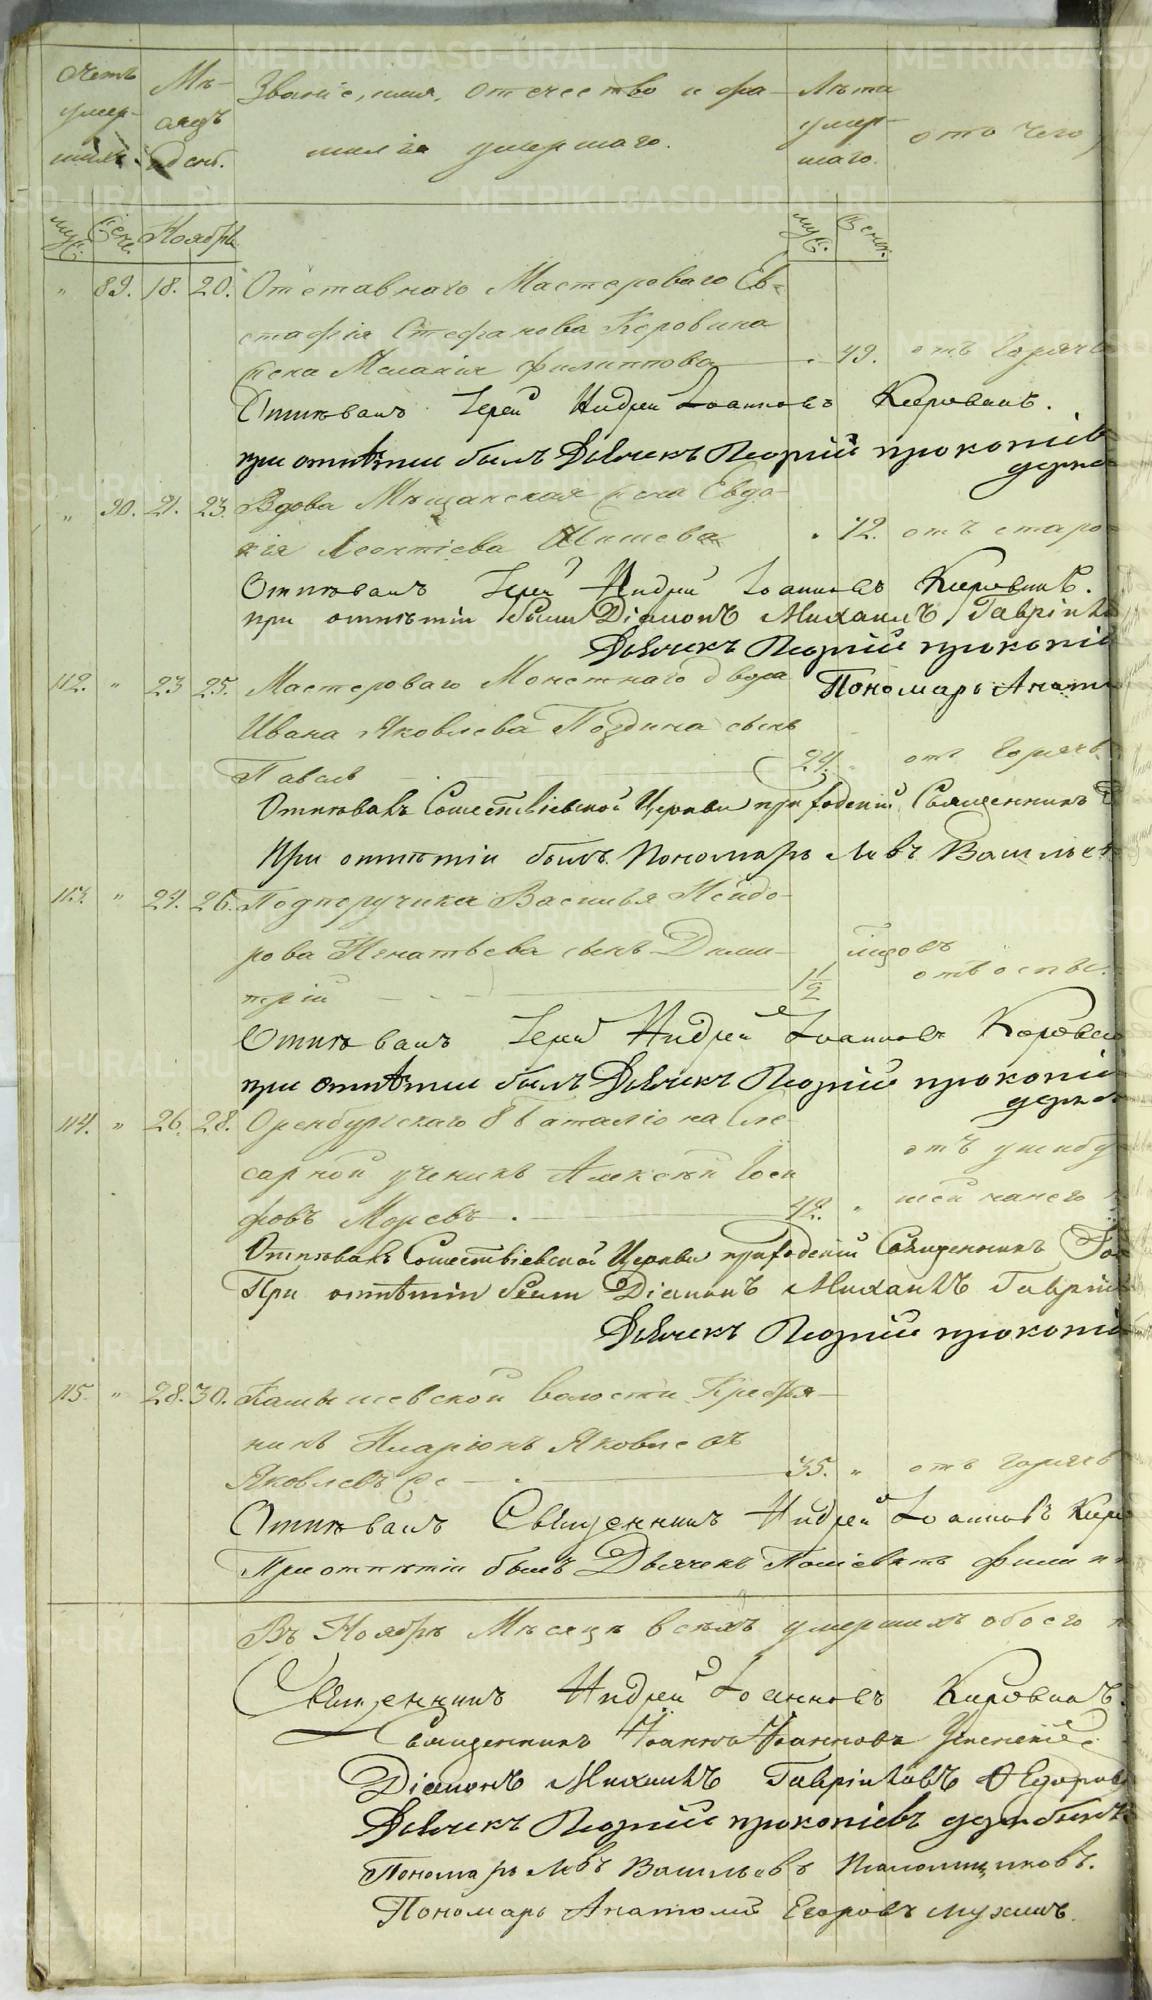 Счетъ умер- шихъ.
Мѣ- сяцъ и день.
Званіе, имя, отечество и фа-
милія умершаго.
Лѣта умер- шаго.
отъ чего
муж. жен. Ноябрь
муж. женс.
" 89. 18. 20. Отставнаго Мастероваго Ев-
стафія Стефанова Коровина
жена Меланія Филиппова . 49. отъ горяч
Отпѣвалъ Іерей Андрей Іоанновъ Коровинъ.
при отпѣтіи былъ Дьячекъ Георгій Прокопіевъ
" 90. 21. 23. Вдова Мѣщанская жена Евдо-
кія Леонтіева Шишева . 72. отъ старо
Отпѣвалъ Іерей Андрей Іоанновъ Коровинъ.
при отпѣтіи были Діаконъ Михаилъ Гавріило
Дьячекъ Георгій Прокопі
Пономарь Анато
112. " 23 25. Мастероваго Монетнаго двора
Ивана Яковлева Поздина сынъ
Павелъ 24. отъ горяч
Отпѣвалъ Сошествіевской Церкви приходскій Священникъ
При отпѣтіи былъ Пономарь Левъ Васильев
113. " 24. 26. Подпоручика Василья Исидо-
рова Игнатьева сынъ Дими-
трій 1 1/2 годовъ отъ оспы.
Отпѣвалъ Іерей Андрей Іоанновъ Корови
при отпѣтіи былъ Дьячекъ Георгій Прокопі
114. " 26. 28. Оренбургскаго 8 баталіона сле-
сарной ученикъ Алексѣй
Моревъ . 42. " отъ ушибу
Отпѣвалъ Сошествіевской Церкви приходскій Священникъ
При отпѣтіи были Діаконъ Михаилъ Гавріи
Дьячекъ Георгій Прокопі
115. " 28. 30. Камышевской волости Крестья-
нинъ Иларіонъ Яковлевъ
Яковлевъ же 35. " отъ горяч
Отпѣвалъ Священникъ Андрей Іоанновъ Коро
При отпѣтіи былъ Дьячекъ Поліевктъ Фили
Въ Ноябрѣ Мѣсяцѣ всѣхъ умершихъ обоего
Священникъ Андрей Іоанновъ Коровинъ.
Священникъ Іоаннъ Іоанновъ
Діаконъ Михаилъ Гавріиловъ Ѳедоров
Дьячекъ Георгій Прокопіевъ
Пономарь Левъ Васильевъ Псаломщиковъ.
Пономарь Анатолій Егоровъ Мухинъ.
METRIKI.GASO-URAL.RU